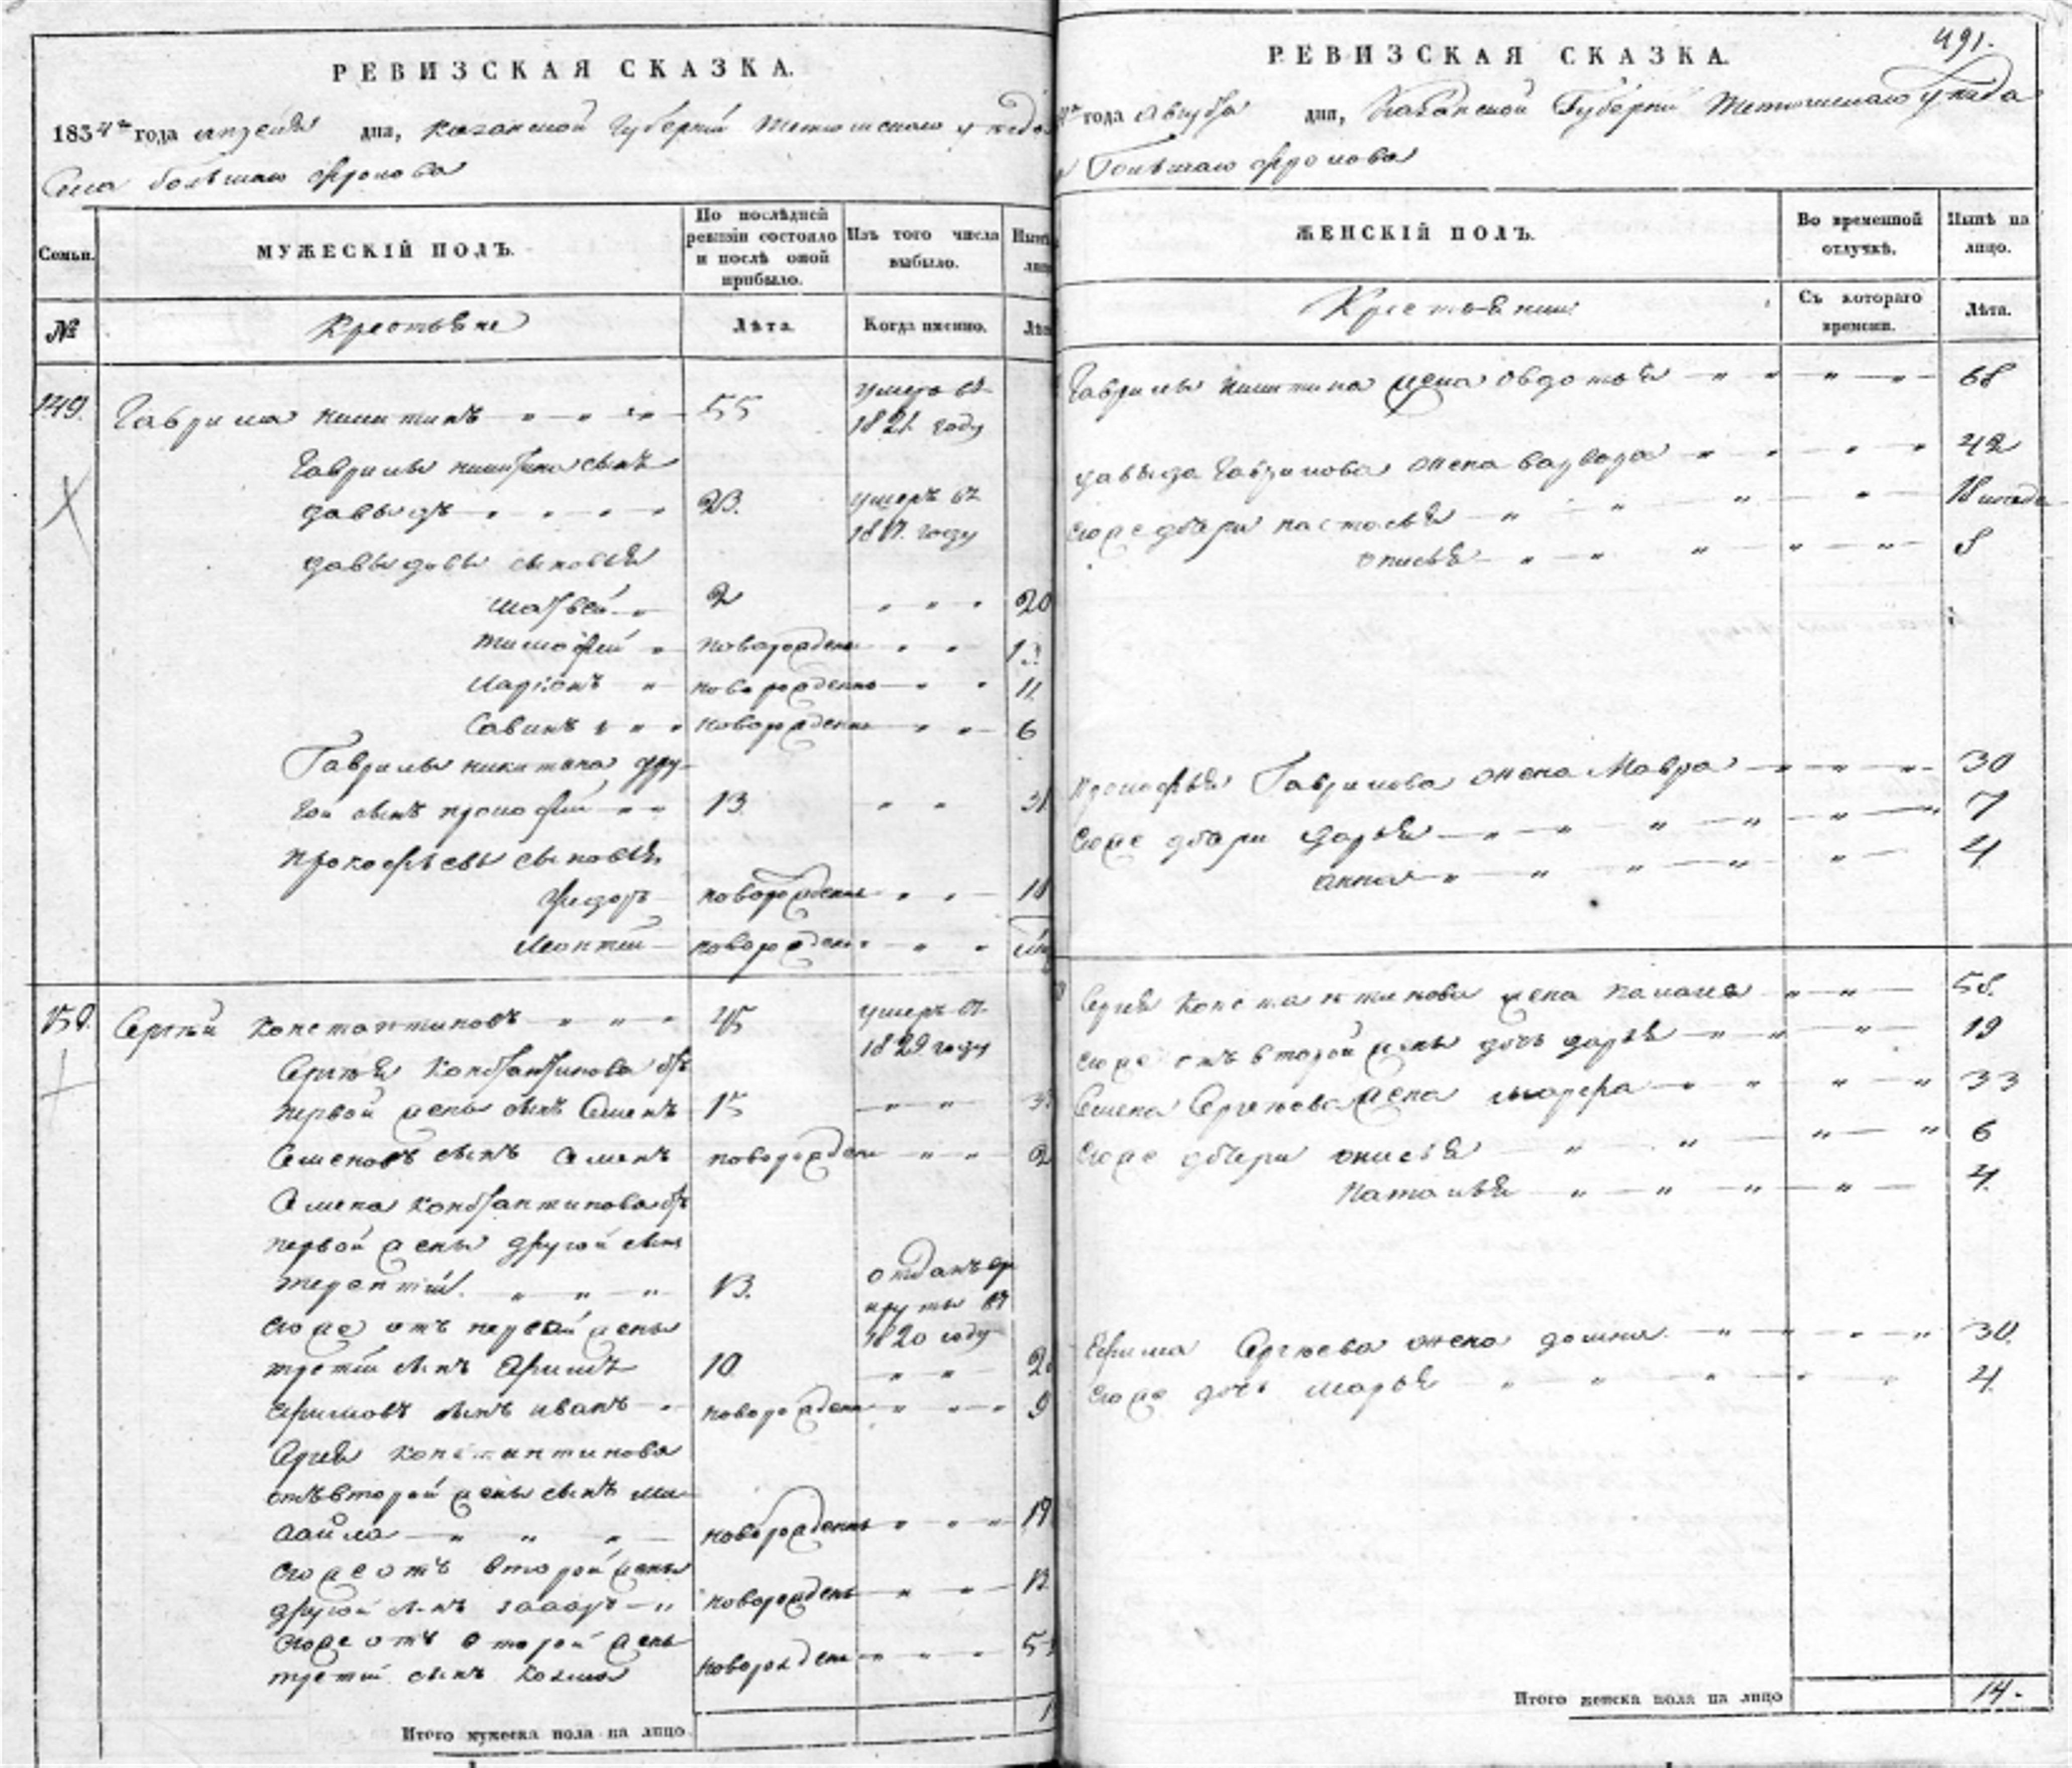 РЕВИЗСКАЯ СКАЗКА.
1834го года дня, Казанской Губернiи Тетюшскаго уезда
Села большаго фролова
Семьи.
МУЖЕСКIЙ ПОЛЪ.
По послѣдней ревизiи состояло и послѣ оной прибыло.
Изъ того числа выбыло.
№
Крестьяне
Лѣта.
Когда именно.
149.
Гаврила никитинъ 55 умеръ въ 1821 году
Гаврилы никитина сынъ
давыдъ 23. умеръ въ году
давыдовы сыновья
матвей 2 20
тимофей новорожденъ
Ларiонъ новорожденъ 11.
Савинъ новорожденъ 6
Гаврилы никитина дру-
гой сынъ прокофей 13. 31
прокофьевы сыновья
федоръ новорожденъ
Леонтiй новорожденъ
150.
Сергѣй Константиновъ 45 умеръ въ 1829 году
Сергѣя Константинова отъ
первой жены сынъ Семенъ 15
Семеновъ сынъ Семенъ новорожденъ 2
Семена Константинова отъ
первой жены другой сынъ
терентiй 13. отданъ въ рекруты въ 1820 году
его же отъ первой жены
третiй сынъ Ефимъ 10
Ефимовъ сынъ иванъ новорожденъ 9
Сергея Константинова
отъ второй жены сынъ ми-
хайла новорожденъ 19
его же отъ второй жены
другой сынъ новорожденъ
его же отъ второй жены
третiй сынъ козма новорожденъ
Итого мужеска пола на лицо
491.
РЕВИЗСКАЯ СКАЗКА.
года Августа дня, Казанской Губернiи Тетюшскаго уезда
Большаго фролова
ЖЕНСКIЙ ПОЛЪ.
Во временной отлучкѣ.
Нынѣ на лицо.
Крестьянки
Съ котораго времени.
Лѣта.
Гаврилы никитина жена овдотья 68
давыда Гаврилова жена варвара 42
его же дочери настасья 18
онисья
прокофья Гаврилова жена Мавра 30
его же дочери дарья 7
анна 4
Сергея Константинова жена 58.
его же отъ второй жены дочь дарья 19
Семена Сергеева жена марфа 33
его же дочери онисья 6
Наталья 4.
Ефима Сергеева жена домна 30.
его же дочь марья 4.
Итого женска пола на лицо 14.